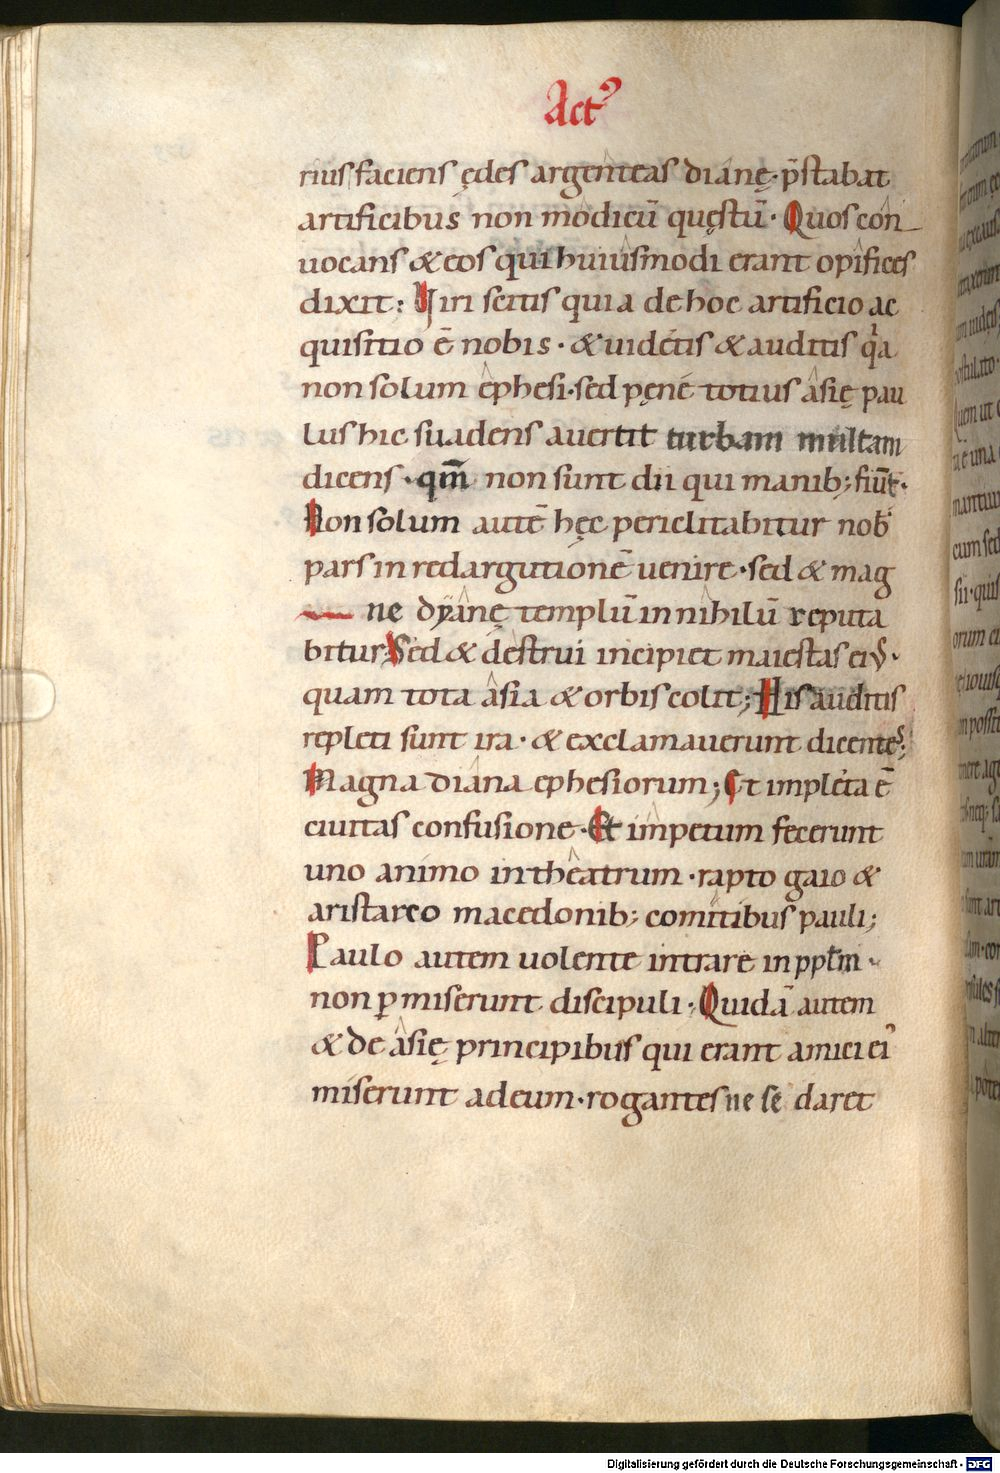 Act᾿
rius faciens ędes argenteas dianę· p̄stabat
artificibus non modicū quęstū· Quos con
uocans & eos qui huiusmodi erant opifices
dixit: Viri scitis quia de hoc artificio ac
quisitio ē nobis· & uidetis & auditis qͥa
non solum ephesi· sed pęne totius asię pau
lus hic suadens auertit turbam multam
dicens· qm̄ non sunt dii qui manib; fiūt·
Non solum autē hęc periclitabitur nob̄
pars in redargutionē uenire· sed & mag
ne dyanę templū in nihilū reputa
bitur; Sed & destrui incipiet maiestas ei᾿·
quam tota asia & orbis colit; His auditis
repleti sunt ira· & exclamauerunt dicentes;
Magna diana ephesiorum; Et impleta ē
ciuitas confusione· Et impetum fecerunt
uno animo in theatrum· rapto gaio &
aristarco macedonib; comitibus pauli;
Paulo autem uolente intrare in ppl̄m·
non ꝑmiserunt discipuli· Quidā autem
& de asię principibus qui erant amici ei᾿
miserunt ad eum· rogantes ne se daret
Digitalisierung gefördert durch die Deutsche Forschungsgemeinschaft - DFG